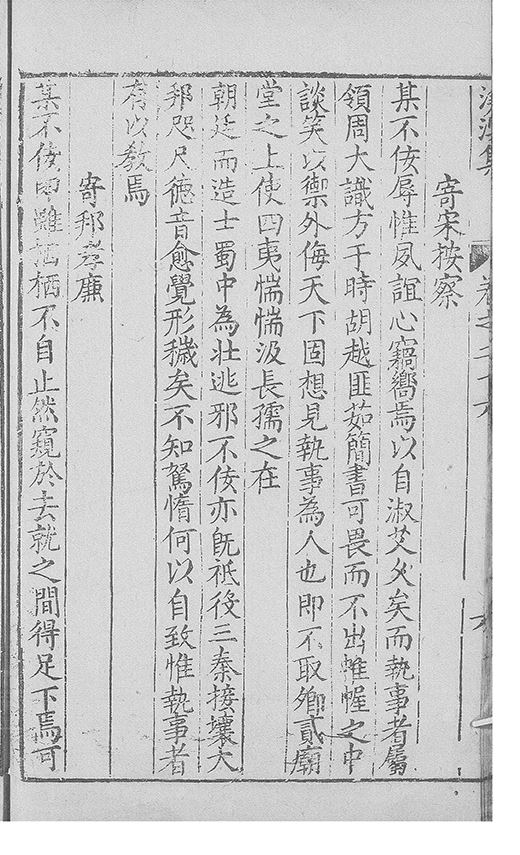 滄溟集 卷之二十八
寄宋按察
某不佞辱惟夙誼心竊嚮焉以自淑艾久矣而執事者屬
領周大識方于時胡越匪茹簡書可畏而不出帷幄之中
談笑以禦外侮天下固想見執事為人也即不取卿貳廟
堂之上使四夷惴惴汲長孺之在
朝廷而造士蜀中為壯逃邪不佞亦既祗役三秦接壤大
邦咫尺德音愈覺形穢矣不知駑惰何以自致惟執事者
有以教焉
寄邦孝廉
某不佞 雖栖栖不自止然窺於去就之間得足下焉可